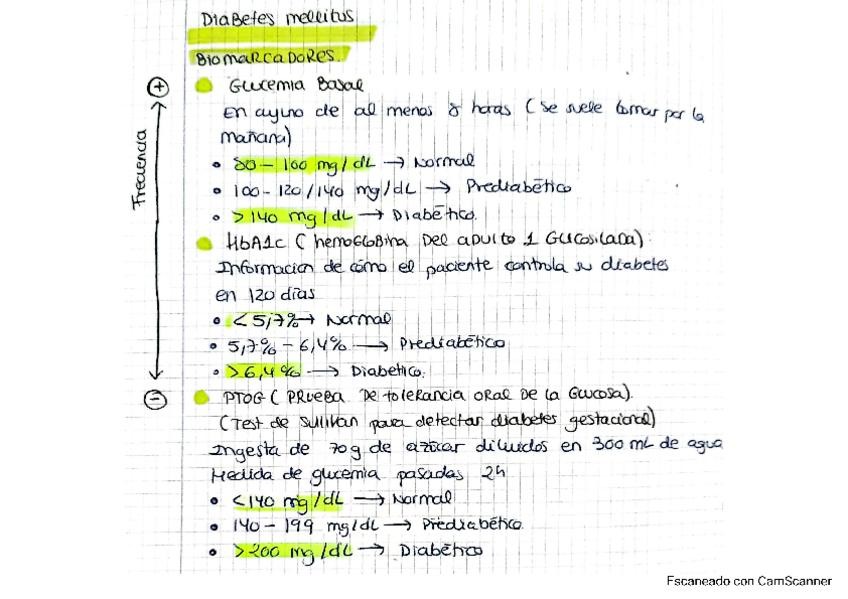 Diabetes mellitus
Biomarcadores.
+
Frecuencia
Glucemia Basal
En ayuno de al menos 8 horas (se suele tomar por la
mañana)
• 80 - 100 mg/dL → Normal
• 100 - 120/140 mg/dL → Prediabético
• >140 mg/dL → Diabético.
HbA1c (hemoglobina del adulto 1 Glucosilada).
Información de cómo el paciente controla su diabetes
en 120 días
• <5,7% → Normal
• 5,7% - 6,4% → Prediabético
• >6,4% → Diabético.
-
PTOG (Prueba De tolerancia oral De la Glucosa).
(Test de Sullivan para detectar diabetes gestacional)
Ingesta de 70g de azúcar diluidos en 300 mL de agua
Medida de glucemia pasadas 2h
• <140 mg/dL → Normal
• 140 - 199 mg/dL → Prediabético.
• >200 mg/dL → Diabético
Escaneado con CamScanner